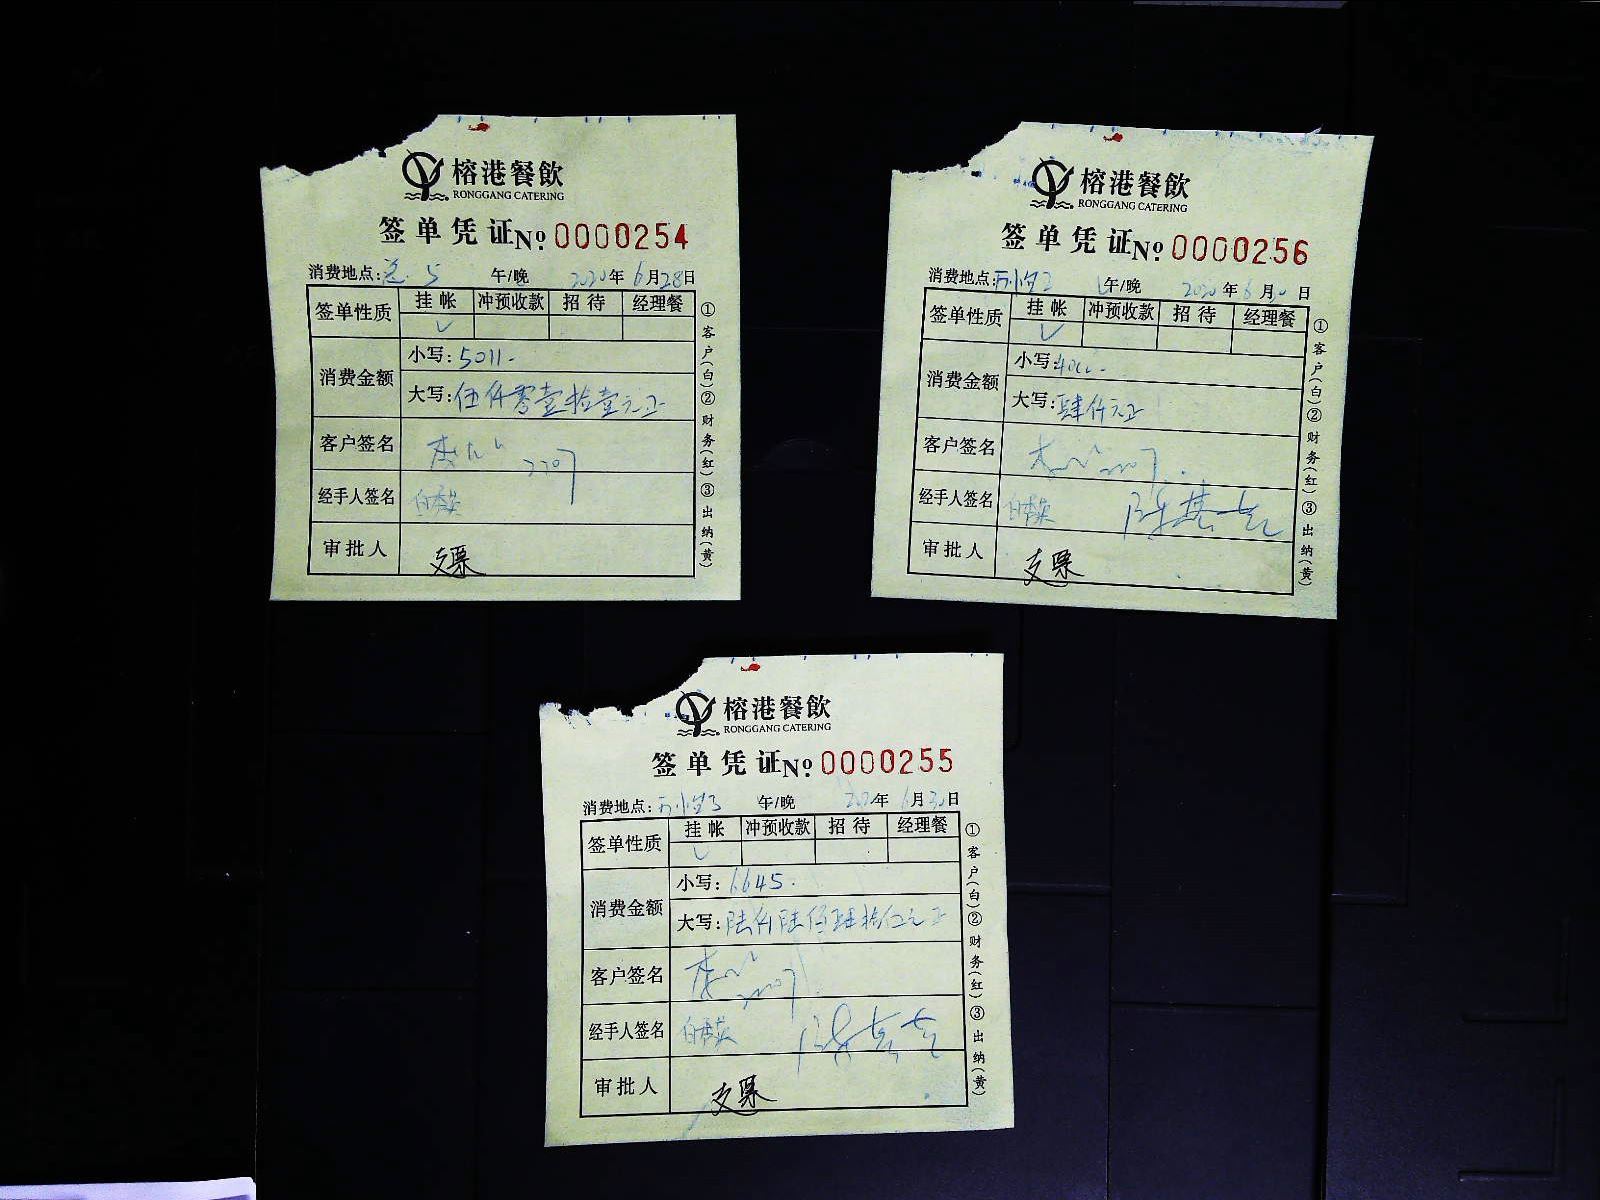 榕港餐飲
RONGGANG CATERING
签单凭证 № 0000254
消费地点: 5 午/晚 2020年6月28日
签单性质 挂帐 冲预收款 招待 经理餐
✓
消费金额 小写: 5011.
大写: 伍仟零壹拾壹元正
客户签名
经手人签名
审批人 支票
①客户(白)②财务(红)③出纳(黄)
榕港餐飲
RONGGANG CATERING
签单凭证 № 0000256
消费地点: 午/晚 2020年6月30日
签单性质 挂帐 冲预收款 招待 经理餐
✓
消费金额 小写: 4000.
大写: 肆仟元正
客户签名
经手人签名
审批人 支票
①客户(白)②财务(红)③出纳(黄)
榕港餐飲
RONGGANG CATERING
签单凭证 № 0000255
消费地点: 午/晚 2020年6月30日
签单性质 挂帐 冲预收款 招待 经理餐
✓
消费金额 小写: 6645.
大写: 陆仟陆佰肆拾伍元正
客户签名
经手人签名
审批人 支票
①客户(白)②财务(红)③出纳(黄)